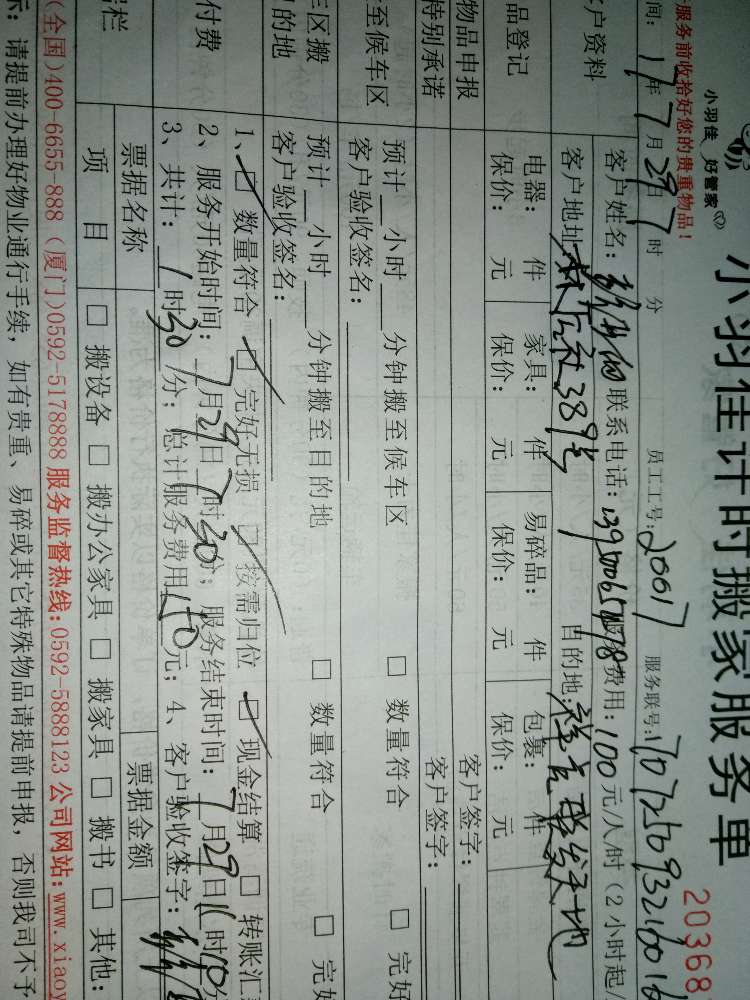 小羽佳计时搬家服务单
20368
小羽佳 好管家
服务前收拾好您的贵重物品!
间: 17年7月29日 时 分 员工工号: 20017 服务联号:
户资料 客户姓名: 联系电话: 费用: 100元/人/时 (2小时起
客户地址: 389号 目的地:
品登记 电器: 件 家具: 件 易碎品: 件 包裹: 件
保价: 元 保价: 元 保价: 元 保价: 元
物品申报 客户签字:
特别承诺 客户签字:
至候车区 预计 小时 分钟搬至候车区 □ 数量符合 □ 完好
客户验收签名:
车区搬 预计 小时 分钟搬至目的地 □ 数量符合 □ 完好
目的地 客户验收签名:
1、□ 数量符合 □ 完好无损 □ 按需归位 □ 现金结算 □ 转账汇
付费 2、服务开始时间: 7月29日 7时30分; 服务结束时间: 7月29日 时10分
3、共计: 1时30分; 总计服务费用150元; 4、客户验收签字:
票据名称 票据金额
栏 项目 □ 搬设备 □ 搬办公家具 □ 搬家具 □ 搬书 □ 其他:
(全国)400-6655-888 (厦门)0592-5178888 服务监督热线:0592-5888123 公司网站:www.xiaoy
示: 请提前办理好物业通行手续, 如有贵重、易碎或其它特殊物品请提前申报, 否则我司不予